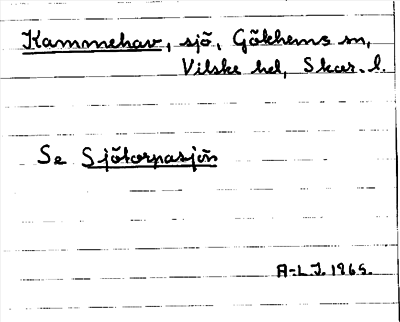 Kammehav, sjö, Gökhems sn,
Vilske hd, Skar. l.
Se Sjötorpasjön
A-L.J. 1969.